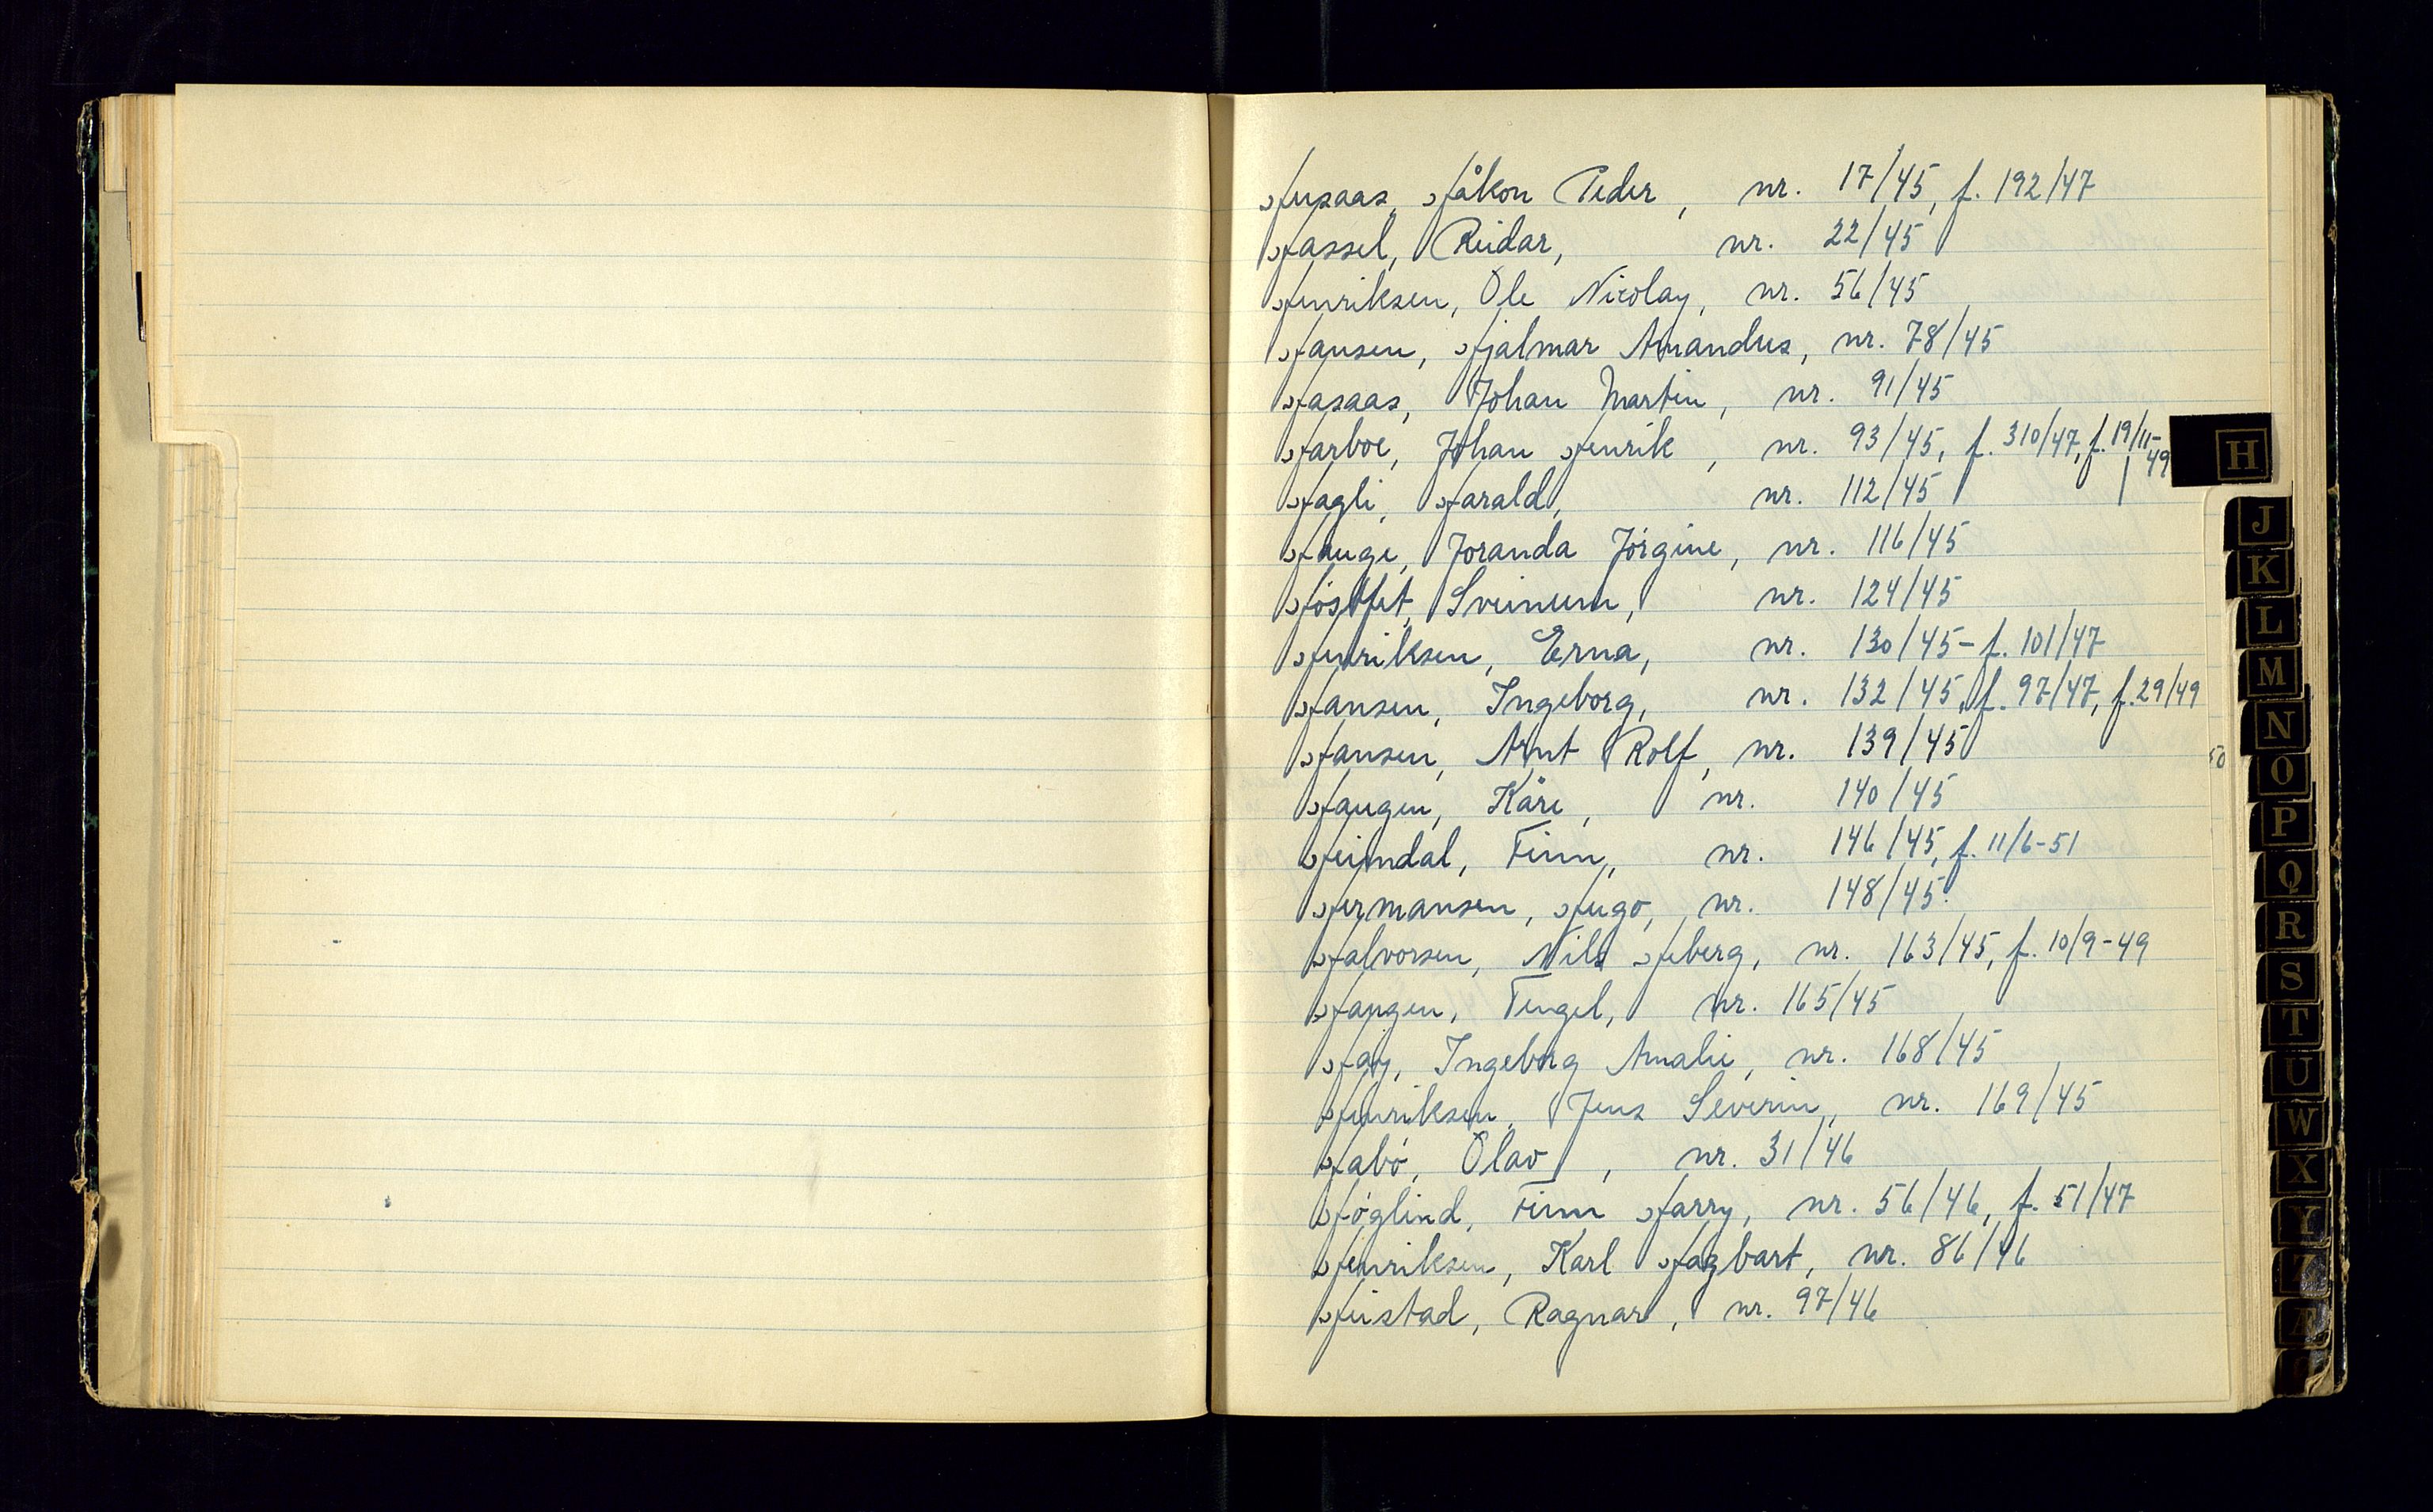 Husaas, Håkon Peder, nr. 17/45, f. 192/47
Hassel, Reidar, nr. 22/45
Henriksen, Ole Nicolay, nr. 56/45
Hansen, Hjalmar Amandus, nr. 78/45
Hasaas, Johan Martin, nr. 91/45
Harboe, Johan Henrik, nr. 93/45, f. 310/47, f. 19/11-49
H
Hagli, Harald, nr. 112/45
J
Hauge, Joranda Jörgine, nr. 116/45
K
Sveinum, nr. 124/45
L
Henriksen, Erna, nr. 130/45 - f. 101/47
M
Hansen, Ingeborg, nr. 132/45, f. 97/47, f. 29/49
N
Hansen, Arnt Rolf, nr. 139/45
50
O
Haugen, Kåre, nr. 140/45
P
Heimdal, Finn, nr. 146/45, f. 11/6-51
Q
Hermansen, Hugo, nr. 148/45.
R
Halvorsen, Nils Heberg, nr. 163/45, f. 10/9-49
S
Haugen, Tengel, nr. 165/45
T
Høy, Ingeborg Amalie, nr. 168/45
U
Henriksen, Jens Severin, nr. 169/45
W
Habö, Olav, nr. 31/46
X
Höglind, Finn Harry, nr. 56/46, f. 51/47
Y
Henriksen, Karl Hagbart, nr. 86/46
Z
Heistad, Ragnar, nr. 97/46
Æ